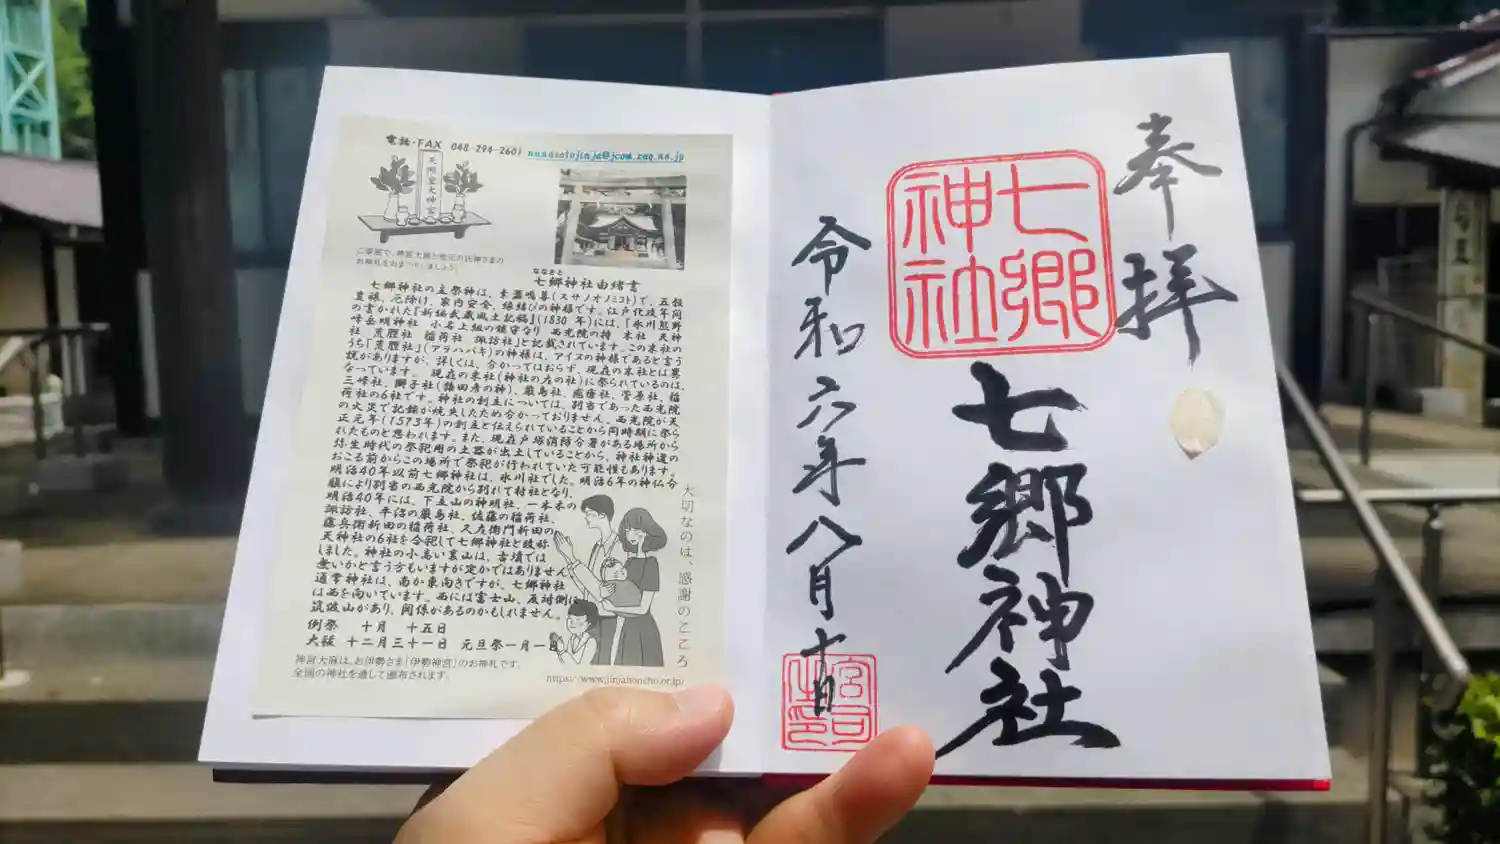 電話・FAX 048-294-2601 nanasatojinja@jcom.zaq.ne.jp
天照皇大神宮
ご家庭で、神宮大麻と地元の氏神さまの
お神札をおまつりしましょう。
ななさと
七郷神社由緒書
七郷神社の主祭神は、素盞嗚尊(スサノオノミコト)で、五穀
豊穣、厄除け、家内安全、縁結びの神様です。江戸化政年間
の書かれた『新編武蔵風土記稿』(1830年)には、「氷川熊野
峰岳明神社 小名上組の鎮守なり 西光院の持 末社 天神
社 荒脛社 稲荷社 諏訪社」と記載されています。この末社の
うち「荒脛社」(アラハバキ)の神様は、アイヌの神様であると言う
説がありますが、詳しくは、分かってはおらず、現在の末社とは異
なっています。 現在の末社(神社の左の社)に祭られているのは、
三峰社、獅子社(猿田彦の神)、厳島社、疱瘡社、菅原社、稲
荷社の6社です。神社の創立については、別当であった西光院
の火災で記録が焼失したため分かっておりません。西光院が天
正元年(1573年)の創立と伝えられていることから同時期に祭ら
れたものと思われます。また、現在戸塚消防分署がある場所から
弥生時代の祭祀用の土器が出土していることから、神社神道の
おこる前からこの場所で祭祀が行われていた可能性もあります。
明治40年以前七郷神社は、氷川社でした。明治6年の神仏分
離により別当の西光院から別れて村社となり、
明治40年には、下立山の神明社、一本木の
諏訪社、平沼の厳島社、佐藤の稲荷社、
藤兵衛新田の稲荷社、久左衛門新田の
天神社の6社を合祀して七郷神社と改称
しました。神社の小高い裏山は、古墳では
無いかと言う方もいますが定かではありません
通常神社は、南か東向きですが、七郷神社
は西を向いています。西には富士山、反対側に
筑波山があり、関係があるのかもしれません。
例祭 十月 十五日
大祓 十二月三十一日 元旦祭一月一日
大切なのは、感謝のこころ
神宮大麻は、お伊勢さま「伊勢神宮」のお神札です。
全国の神社を通して頒布されます。
https://www.jinjahoncho.or.jp/
奉拝
七郷
神社
七郷神社
令和六年八月十日
宮司
之印